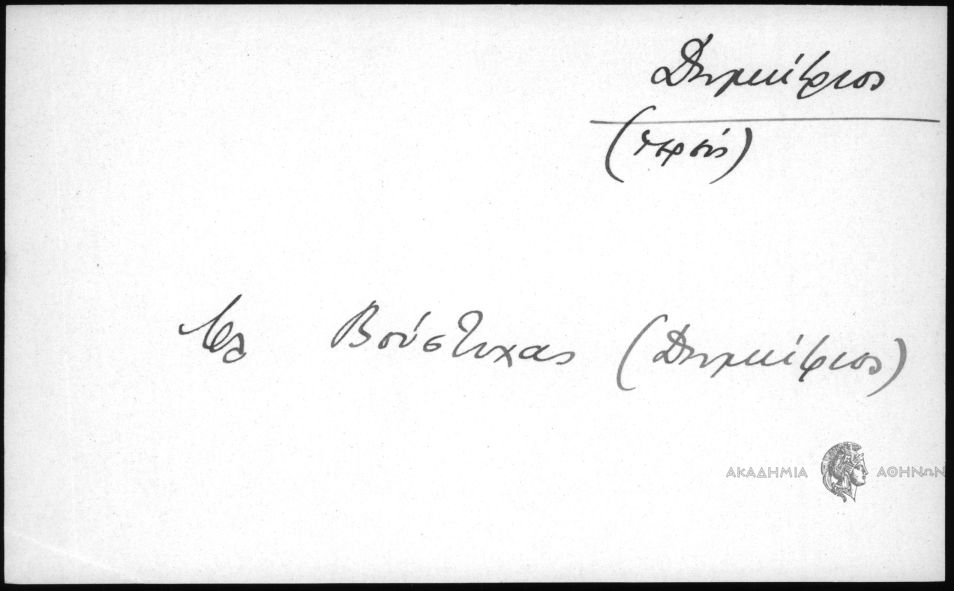 Δημήτριος
(
Βλ Βούστυχας (Δημήτριος)
ΑΚΑΔΗΜΙΑ ΑΘΗΝΩΝ